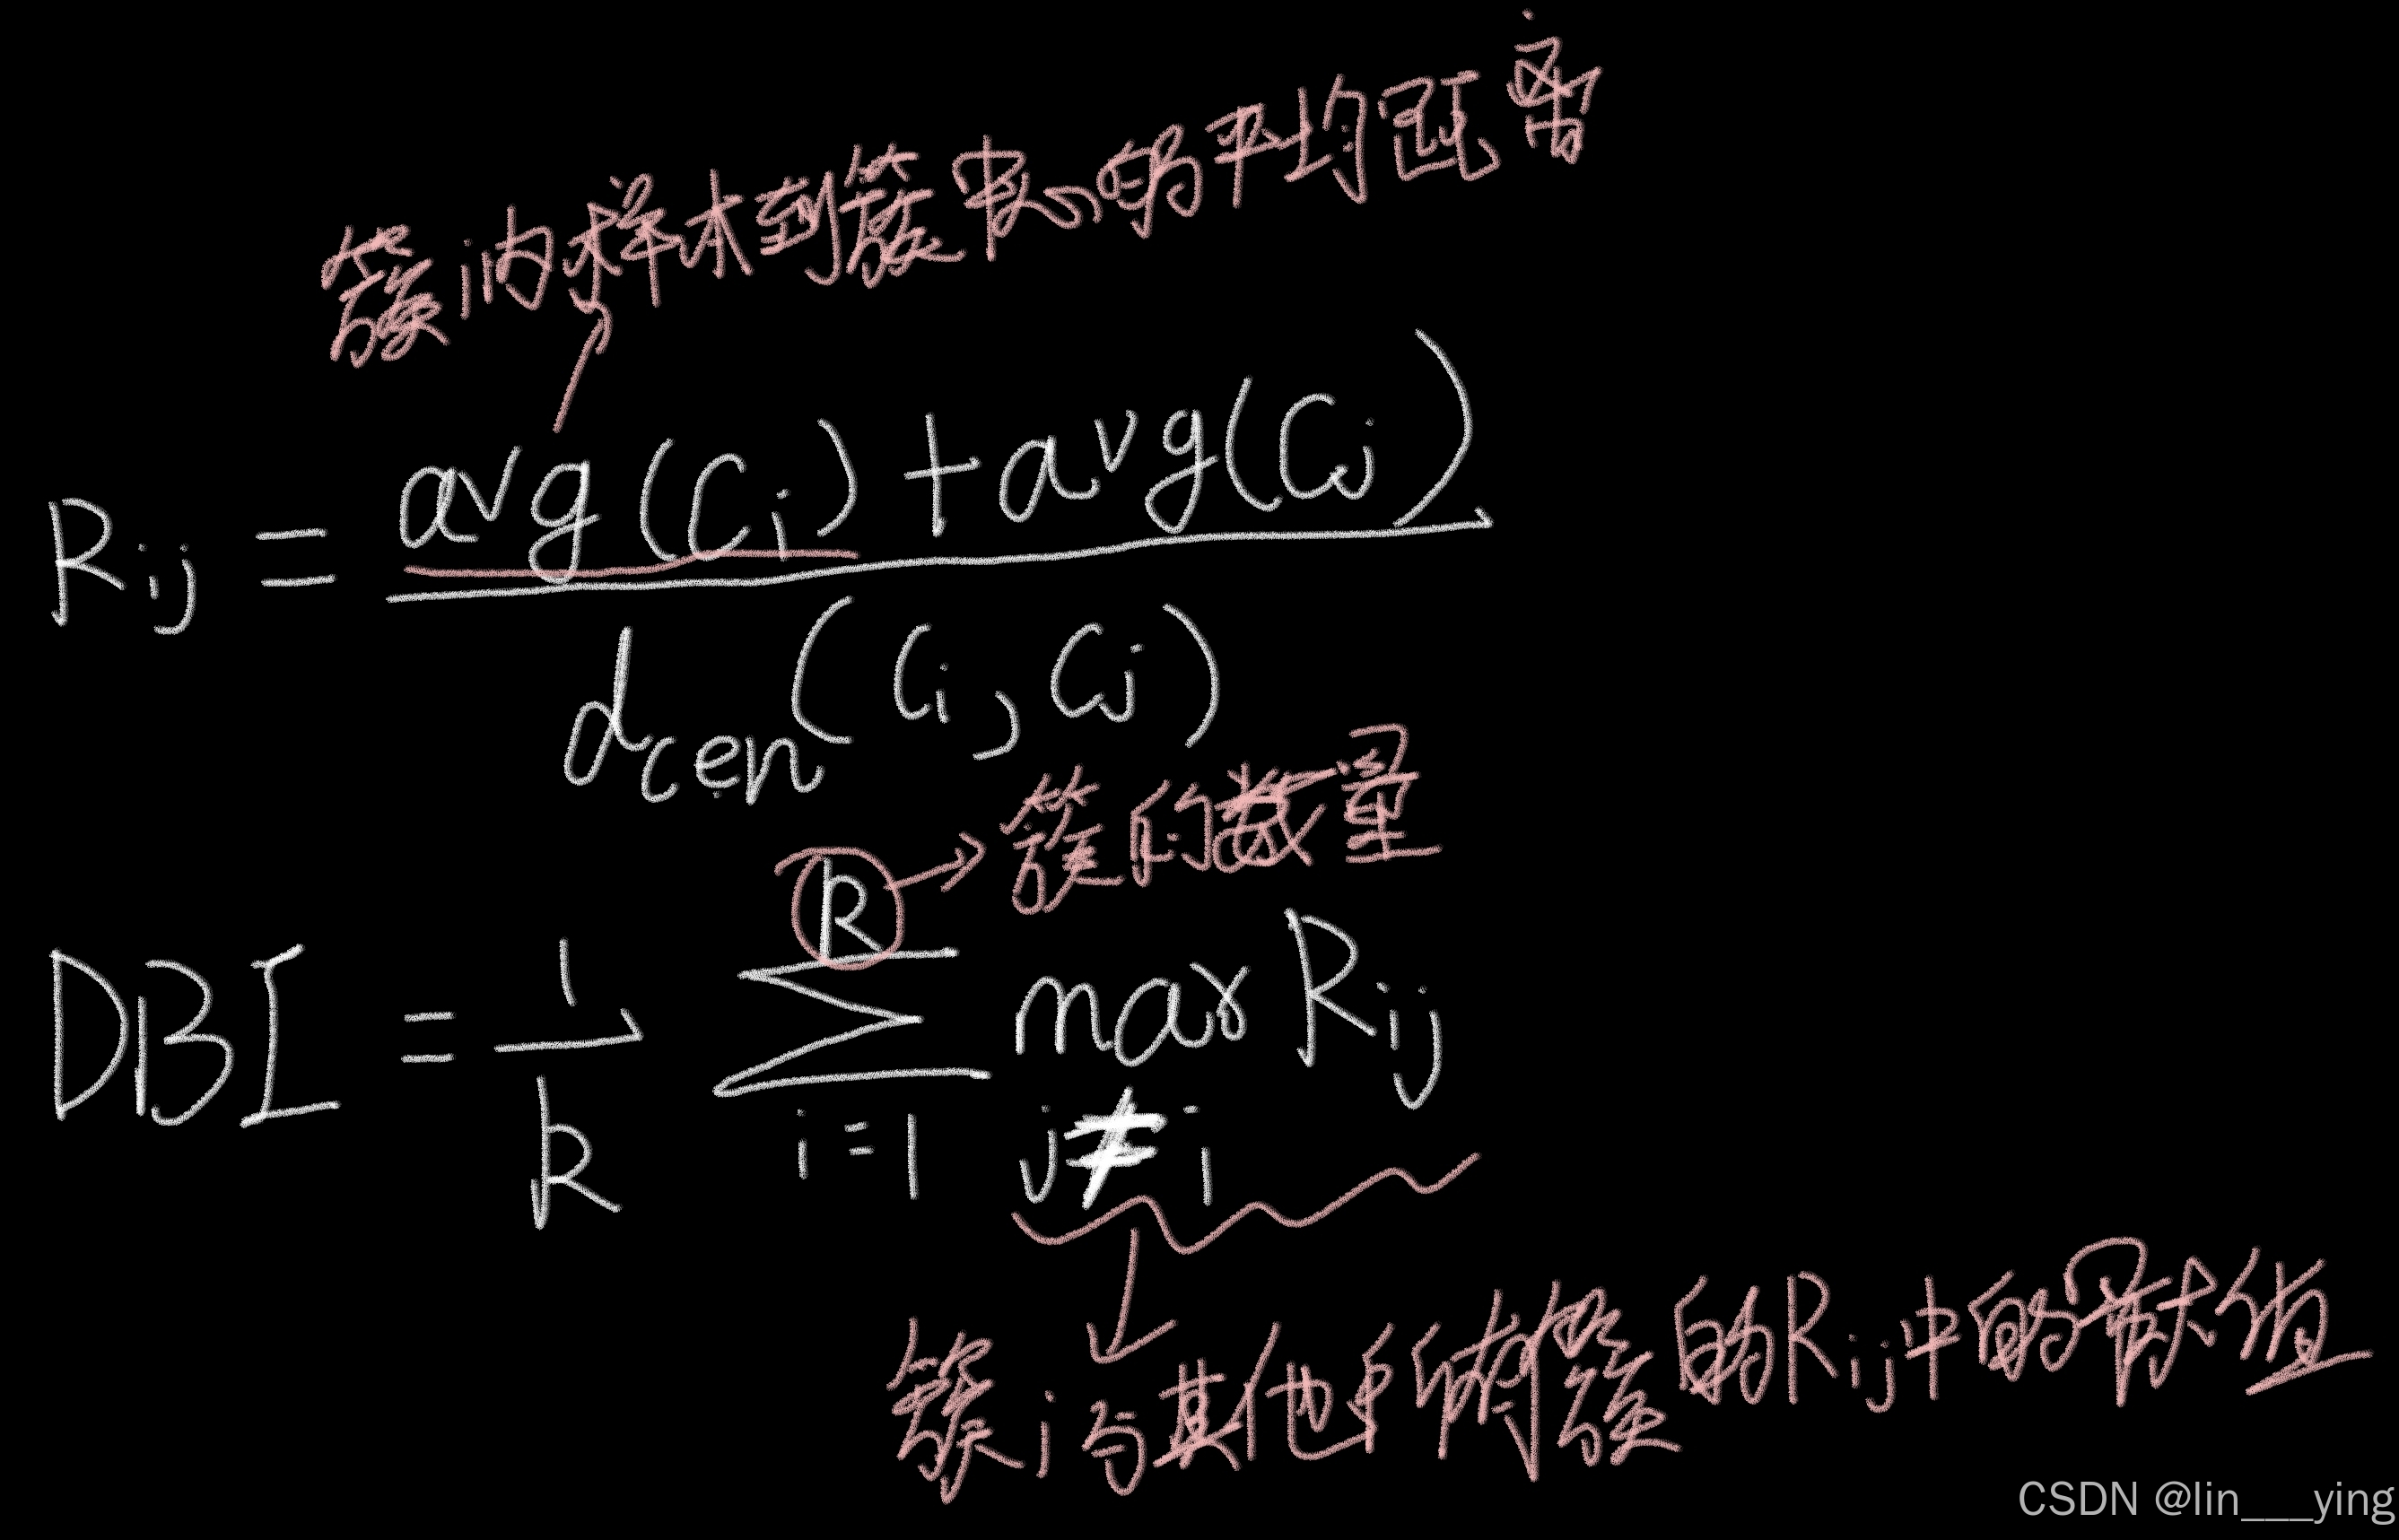 簇i内样本到簇中心的平均距离
R_{ij} = \frac{avg(C_i)+avg(C_j)}{d_{cen}(C_i, C_j)}
k→簇的数量
DBI = \frac{1}{k} \sum_{i=1}^{k} \max_{j≠i} R_{ij}
簇i与其他所有簇的R_{ij}中的最大值
CSDN @lin___ying